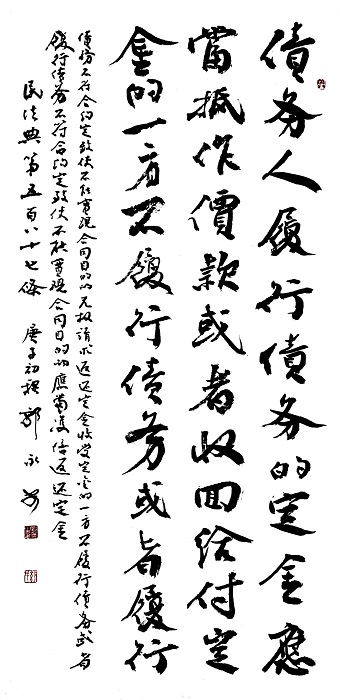 債务人履行債务的定金應
當抵作價款或者收回给付定
金的一方不履行債务或者履行
債務不符合约定致使不能實現合同目的的无权請求返还定金收受定金的一方不履行債务或者
履行債务不符合约定致使不能實現合同目的的應當雙倍返还定金
民法典第五百八十七條 庚子初秋 郭永